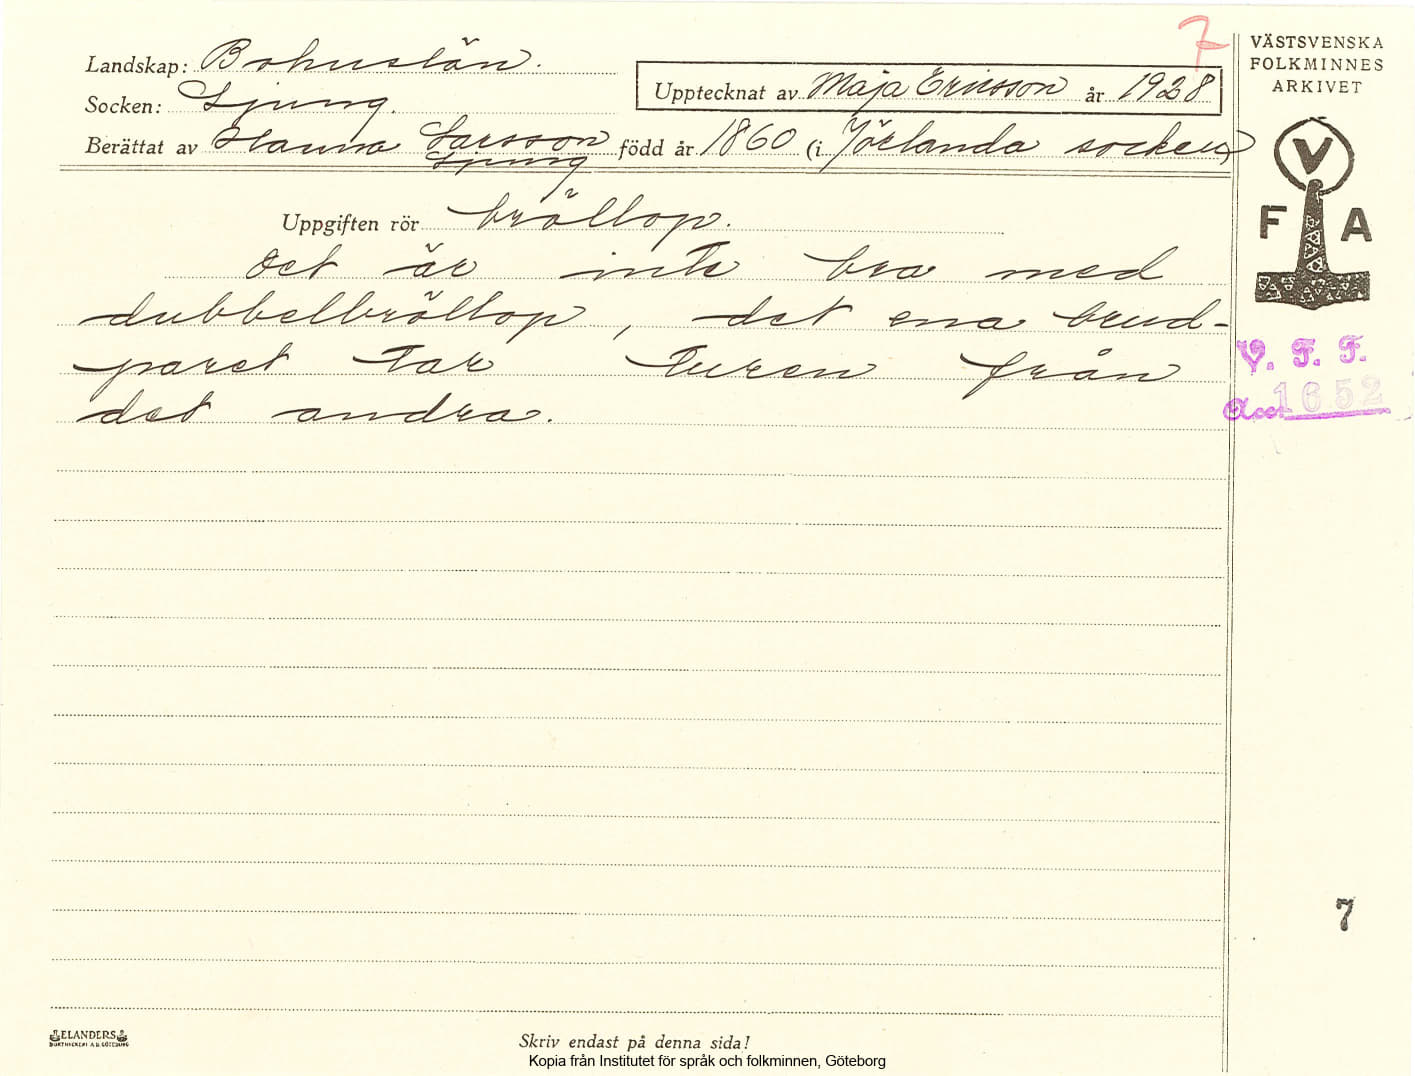 7
VÄSTSVENSKA
FOLKMINNES
ARKIVET
Landskap: Bohuslän.
Upptecknat av Maja Ericsson år 1928
Socken: Ljung.
Berättat av Hanna Larsson född år 1860 (i Jörlanda socken)
Ljung
V
F A
Uppgiften rör bröllop.
Det är inte bra med
dubbelbröllop, det ena brud-
paret tar turen från
det andra.
V. F. F.
Acc 1652
7
ELANDERS
BOKTRYCKERI A.B. GÖTEBORG
Skriv endast på denna sida!
Kopia från Institutet för språk och folkminnen, Göteborg